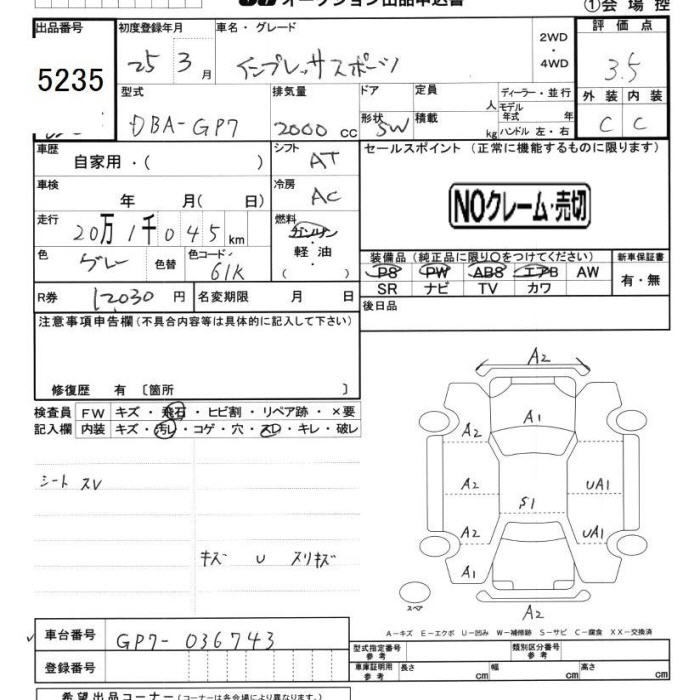 オークション出品申込書
①会場控
出品番号 初度登録年月 車名・グレード 2WD ・ 4WD 評価点
5235 25 3月 インプレッサスポーツ 3.5
型式 排気量 ドア 定員 人 ディーラー・並行 外装 内装
DBA-GP7 2000 cc 形状 SW 積載 kg モデル年式 年 ハンドル 左・右 C C
車歴 自家用・( ) シフト AT セールスポイント (正常に機能するものに限ります)
車検 年 月( 日) 冷房 AC NOクレーム・売切
走行 20万1千045km 燃料 ガソリン・軽油・( )
色 グレー 色替 色コード 61K 装備品(純正品に限り○をつけてください) 新車保証書
PS PW ABS エアB AW 有・無
SR ナビ TV カワ
R券 12030円 名変期限 月 日 後日品
注意事項申告欄(不具合内容等は具体的に記入して下さい)
修復歴 有 〔箇所 〕
検査員 FW キズ・飛石・ヒビ割・リペア跡・×要
記入欄 内装 キズ・汚レ・コゲ・穴・スレ・キレ・破レ
シート スレ
キズ U スリキズ
A2
A1
A2
A2 UA1
S1
A2 UA1
A1
A2
スペア
A-キズ E-エクボ U-凹み W-補修跡 S-サビ C-腐食 XX-交換済
車台番号 GP7-036743 型式指定番号 参考 類別区分番号 参考
登録番号 車庫証明用 参考 長さ cm 幅 cm 高さ cm
希望出品コーナー(コーナーは各会場により異なります。)